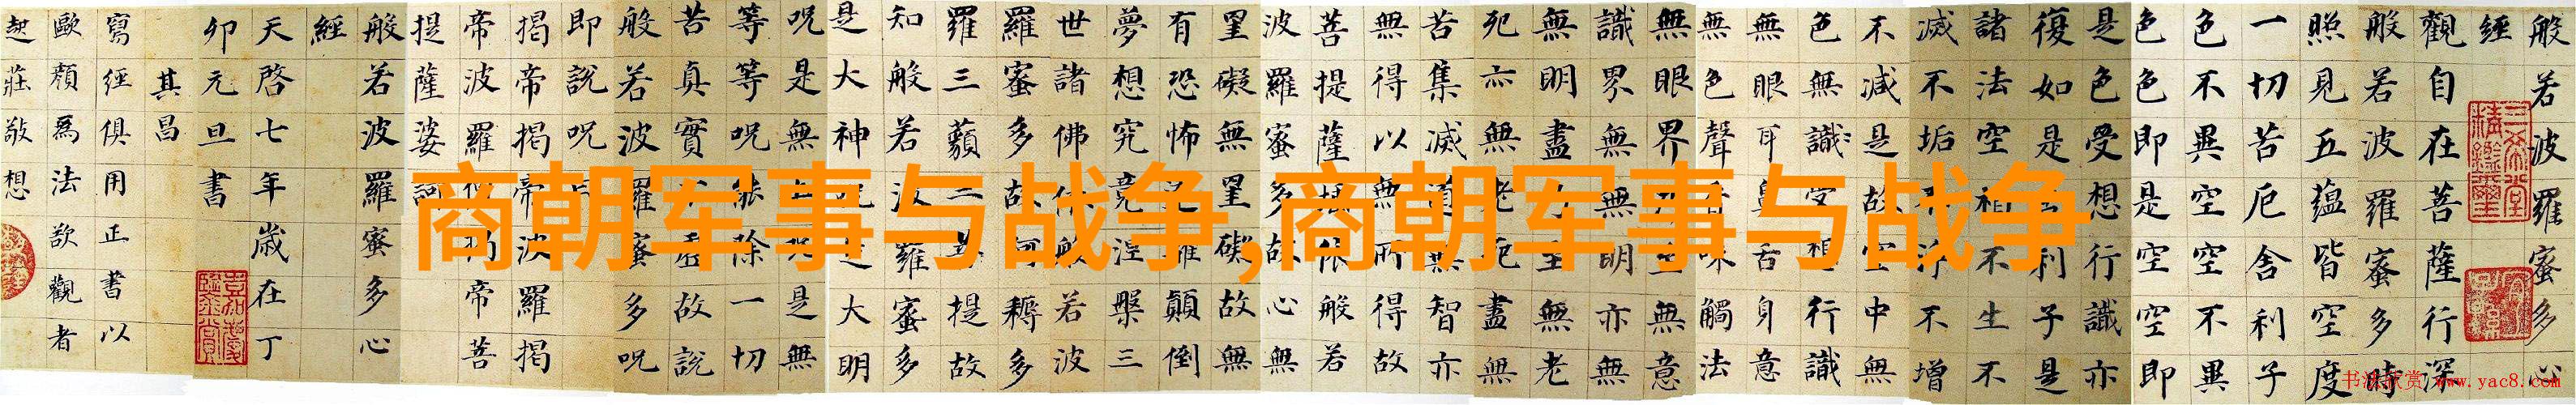 般若波羅蜜多心
經
觀自在菩薩行深
般若波羅蜜多時
照見五蘊皆空度
一切苦厄舍利子
色不異空空不異
色色即是空空即
是色受想行識亦
復如是舍利子是
諸法空相不生不
滅不垢不淨不增
不減是故空中無
色無識受想行識
無眼耳鼻舌身意
無色聲香味觸法
無眼界乃至無意
識界無無明亦無
無明盡乃至無老
死亦無老死盡無
苦集滅道無智亦
無得以無所得故
菩提薩埵依般若
波羅蜜多故心無
罣礙無罣礙故無
有恐怖遠離顛倒
夢想究竟涅槃三
世諸佛依般若波
羅蜜多故阿耨多
羅三藐三菩提故
知般若波羅蜜多
是大神咒是大明
呪是無上咒是無
等等呪能除一切
苦真實不虛故說
般若波羅蜜多呪
即說呪曰
揭帝揭帝波羅揭
帝波羅僧揭帝菩
提薩婆訶
般若波羅蜜多心
經
天啓七年歲在丁
卯元旦書
其昌
寫經俱用正書以
歐顏爲法欲觀者
起莊敬想
商朝军事与战争,商朝军事与战争
书法欣赏 www.yac8.com